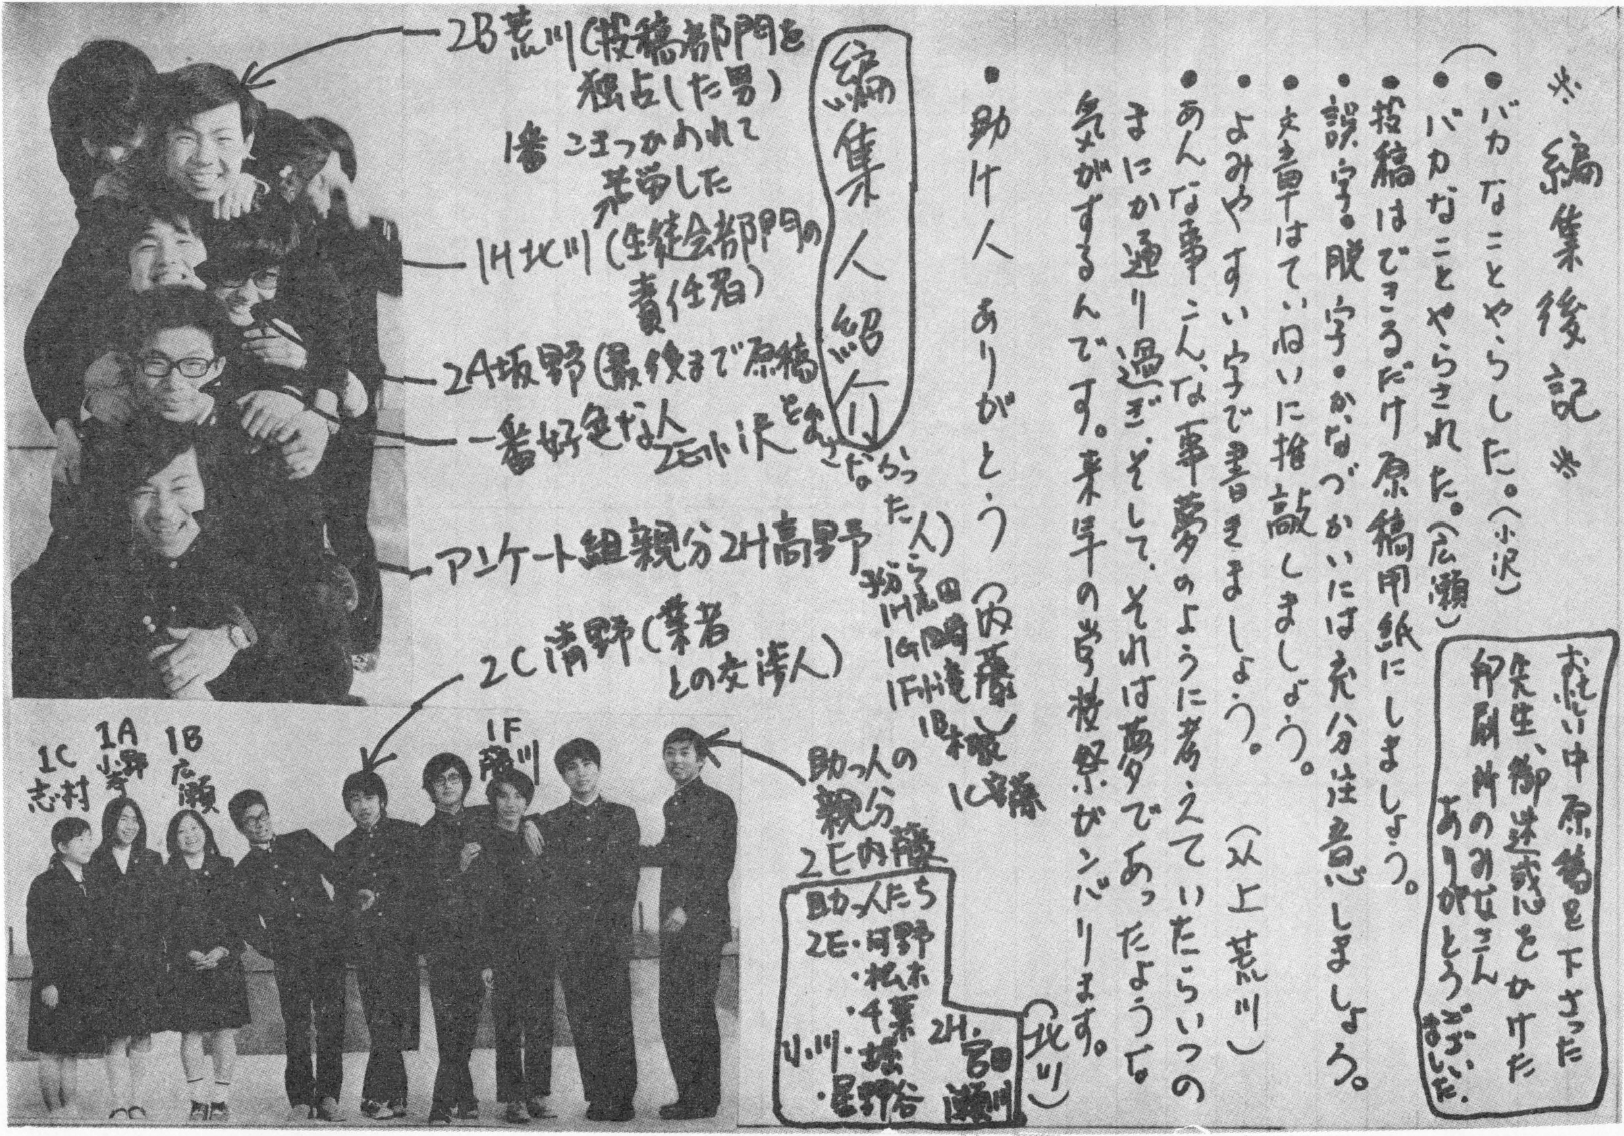 ※編集後記※
・バカなことやらした。(小沢)
・バカなことやらされた。(広瀬)
・投稿はできるだけ原稿用紙にしましょう。
・誤字。脱字。かなづかいには充分注意しましょう。
・文章はていねいに推敲しましょう。
・よみやすい字で書きましょう。 (以上荒川)
・あんな事こんな事夢のように考えていたらいつの
まにか通り過ぎ、そして、それは夢であったような
気がするんです。来年の学校祭がンバリます。
(北川)
・助け人 ありがとう (内藤)
お忙い中原稿を下さった
先生、御迷惑をかけた
印刷所のみなさん
ありがとうござい
ました。
編集人紹介
2B荒川(投稿部門を
独占した男)
1番こきつかわれて
苦労した
1H北川(生徒会部門の
責任者)
2A坂野(最後まで原稿
を出さなかった人)
一番好色な人
2E小沢
アンケート組親分2H高野
子分ら
1H志田
1G岡崎
1F小滝
1B
1C
2C清野(業者
との交渉人)
1C
志村
1A
小野寺
1B
広瀬
1F
藤川
助っ人の
親分
2E内藤
助っ人たち
2E・河野
・松木
・千葉
小川・堀
・星野谷
2H・宮田
瀬川